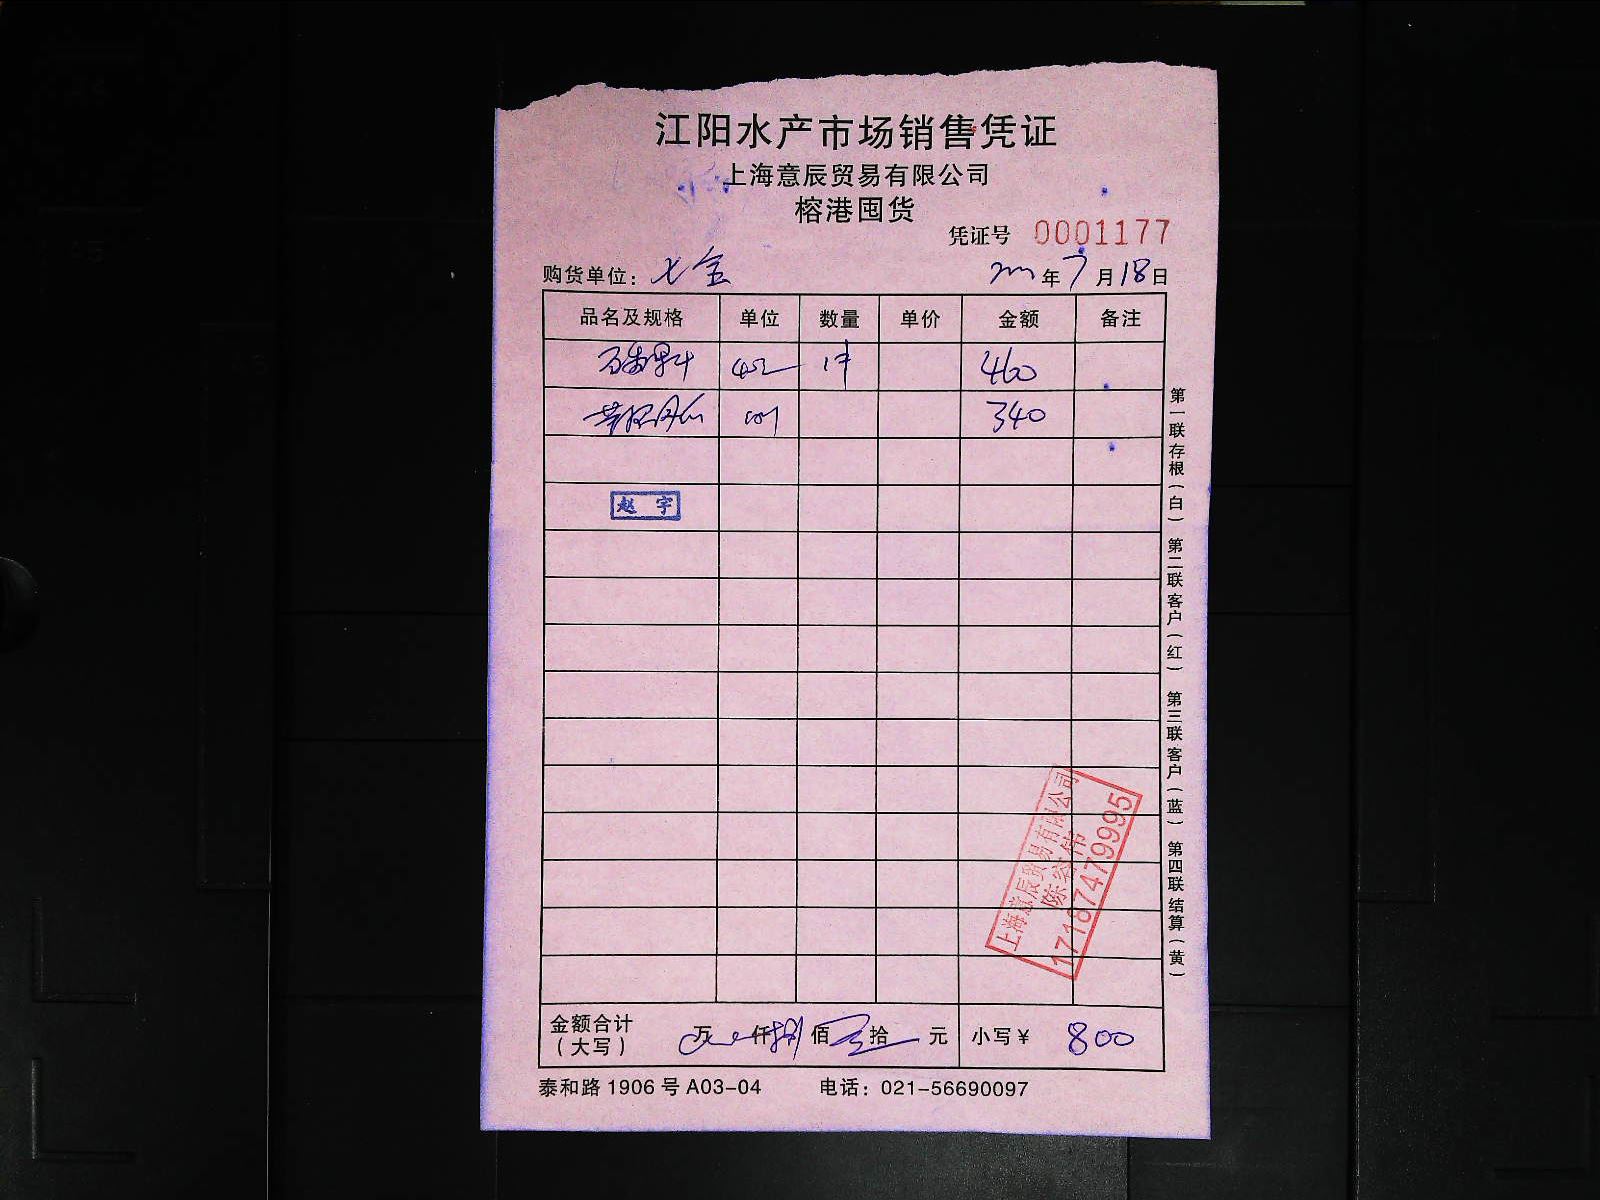 江阳水产市场销售凭证
上海意辰贸易有限公司
榕港囤货
凭证号 0001177
购货单位：七宝
年7月18日
品名及规格 单位 数量 单价 金额 备注
1件 460
340
赵宇
上海意辰贸易有限公司
陈容伟
17187479995
金额合计（大写） 万 仟捌佰 拾 元 小写¥ 800
泰和路1906号A03-04 电话：021-56690097
第一联存根（白） 第二联客户（红） 第三联客户（蓝） 第四联结算（黄）